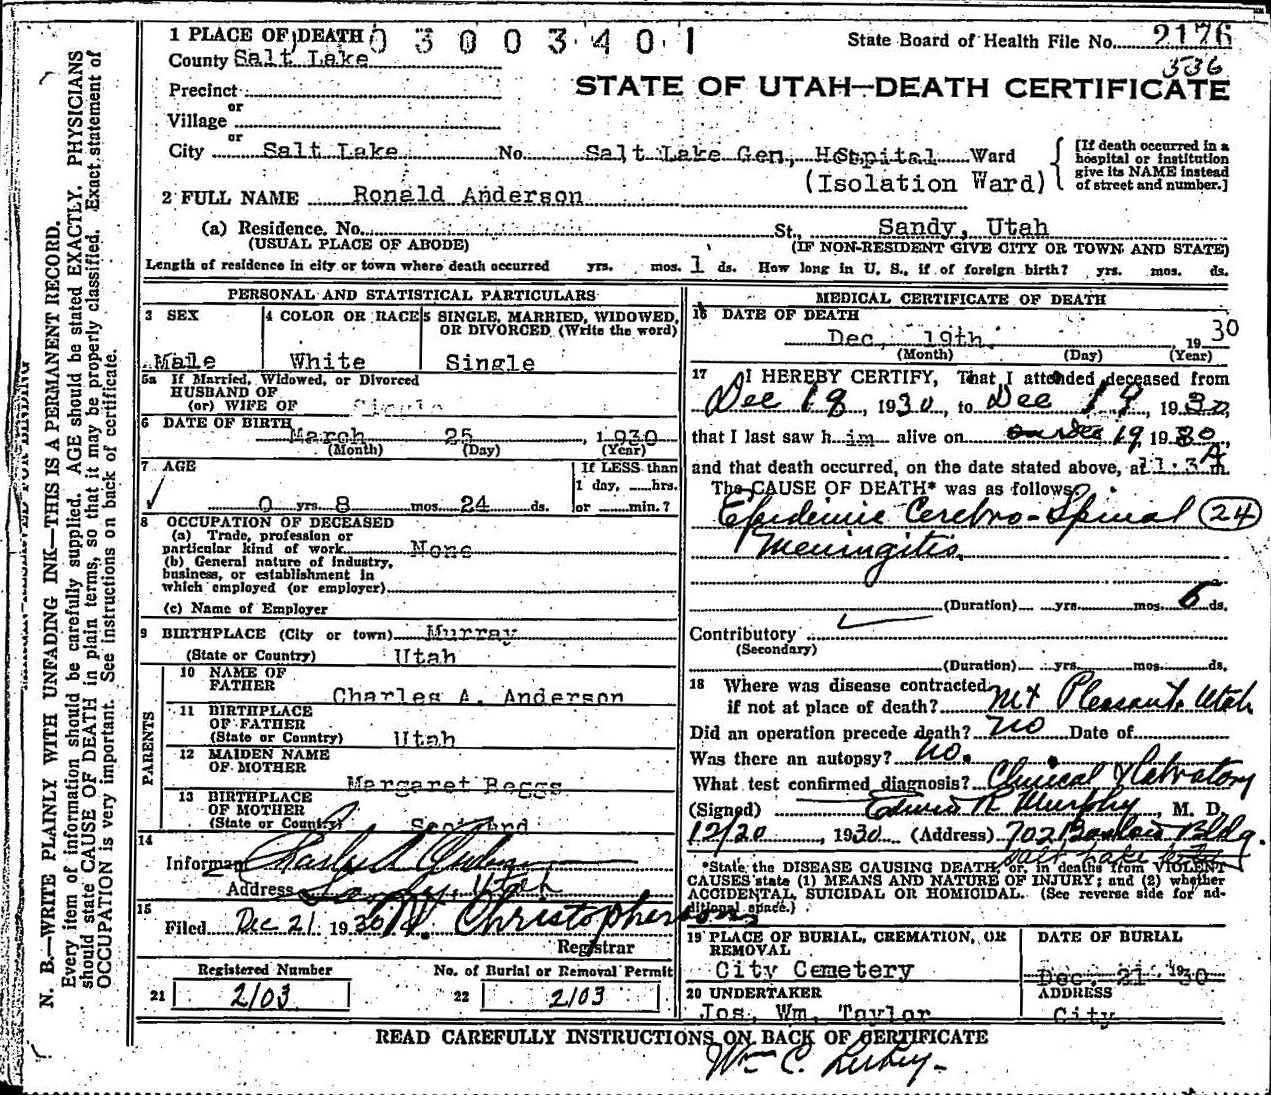 1 PLACE OF DEATH 0 3 0 0 3 4 0 1
State Board of Health File No. 2176
County Salt Lake
536
STATE OF UTAH—DEATH CERTIFICATE
Precinct
or
Village
or
City Salt Lake No. Salt Lake Gen, Hospital Ward
(Isolation Ward)
[If death occurred in a
hospital or institution
give its NAME instead
of street and number.]
2 FULL NAME Ronald Anderson
(a) Residence. No. St., Sandy, Utah
(USUAL PLACE OF ABODE) (IF NON-RESIDENT GIVE CITY OR TOWN AND STATE)
Length of residence in city or town where death occurred yrs. mos. 1 ds. How long in U. S., if of foreign birth? yrs. mos. ds.
PERSONAL AND STATISTICAL PARTICULARS
3 SEX
Male
4 COLOR OR RACE
White
5 SINGLE, MARRIED, WIDOWED,
OR DIVORCED (Write the word)
Single
5a If Married, Widowed, or Divorced
HUSBAND OF
(or) WIFE OF Single
6 DATE OF BIRTH
March 25, 1930
(Month) (Day) (Year)
7 AGE
0 yrs. 8 mos. 24 ds.
If LESS than
1 day, hrs.
or min.?
8 OCCUPATION OF DECEASED
(a) Trade, profession or
particular kind of work None
(b) General nature of industry,
business, or establishment in
which employed (or employer)
(c) Name of Employer
9 BIRTHPLACE (City or town) Murray
(State or Country) Utah
PARENTS
10 NAME OF
FATHER Charles A. Anderson
11 BIRTHPLACE
OF FATHER
(State or Country) Utah
12 MAIDEN NAME
OF MOTHER
Margaret Beggs
13 BIRTHPLACE
OF MOTHER
(State or Country) Scotland
14
Informant Charles A Anderson
Address Sandy, Utah
15
Filed Dec 21 1930 Christopherson
Registrar
Registered Number
21 2103
No. of Burial or Removal Permit
22 2103
MEDICAL CERTIFICATE OF DEATH
16 DATE OF DEATH
Dec, 19th, 1930
(Month) (Day) (Year)
17 I HEREBY CERTIFY, That I attended deceased from
Dec 18, 1930, to Dec 19, 1930,
that I last saw him alive on Dec 19 1930,
and that death occurred, on the date stated above, at 11.3 A m.
The CAUSE OF DEATH* was as follows:
Epidemic Cerebro-Spinal 24
Meningitis
(Duration) yrs. mos. 6 ds.
Contributory
(Secondary)
(Duration) yrs. mos. ds.
18 Where was disease contracted
if not at place of death? Mt Pleasant. Utah
Did an operation precede death? No Date of
Was there an autopsy? No.
What test confirmed diagnosis? Clinical & Labratory
(Signed) Edwin R Murphy M. D.
12/20, 1930 (Address) 702 Bldg.
Salt Lake
*State the DISEASE CAUSING DEATH, or, in deaths from VIOLENT
CAUSES state (1) MEANS AND NATURE OF INJURY; and (2) whether
ACCIDENTAL, SUICIDAL OR HOMICIDAL. (See reverse side for ad-
ditional space.)
19 PLACE OF BURIAL, CREMATION, OR
REMOVAL
City Cemetery
DATE OF BURIAL
Dec. 21, 1930
20 UNDERTAKER
Jos, Wm, Taylor
ADDRESS
City
READ CAREFULLY INSTRUCTIONS ON BACK OF CERTIFICATE
Wm C.
N. B.—WRITE PLAINLY WITH UNFADING INK—THIS IS A PERMANENT RECORD.
Every item of information should be carefully supplied. AGE should be stated EXACTLY. PHYSICIANS
should state CAUSE OF DEATH in plain terms, so that it may be properly classified. Exact statement of
OCCUPATION is very important. See instructions on back of certificate.